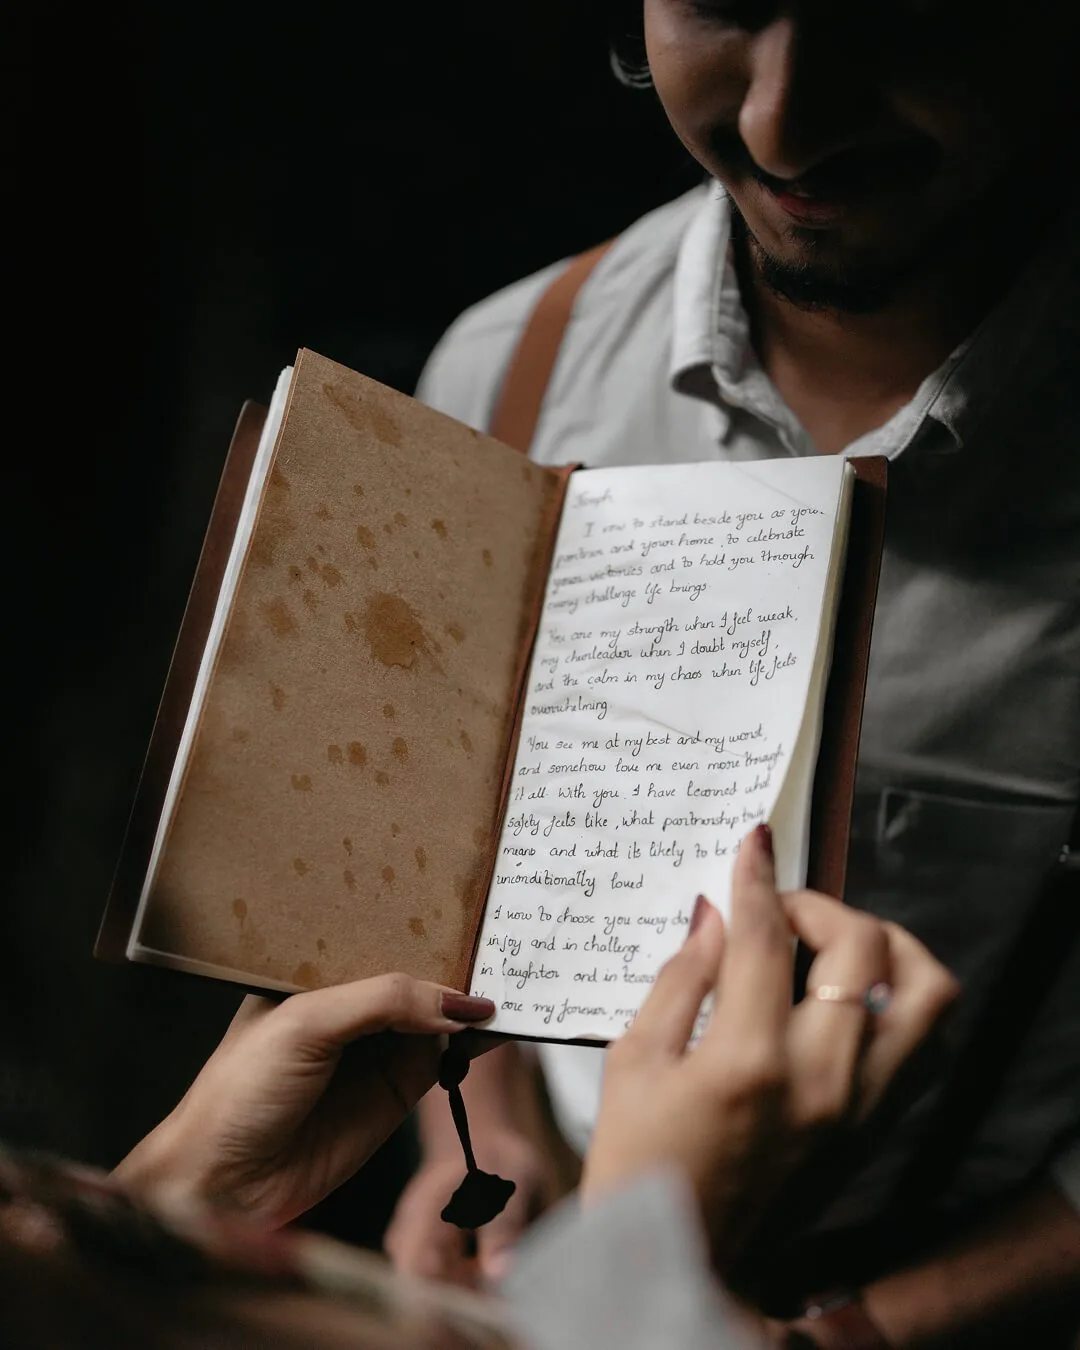 Joseph
I vow to stand beside you as your
partner and your home, to celebrate
your victories and to hold you through
every challenge life brings.
You are my strength when I feel weak,
my cheerleader when I doubt myself,
and the calm in my chaos when life feels
overwhelming
You see me at my best and my worst,
and somehow love me even more through
it all. With you, I have learned what
safety feels like, what partnership truly
means and what its likely to be
unconditionally loved
I vow to choose you every
in joy and in challenge,
in laughter and in tears
are my forever, my